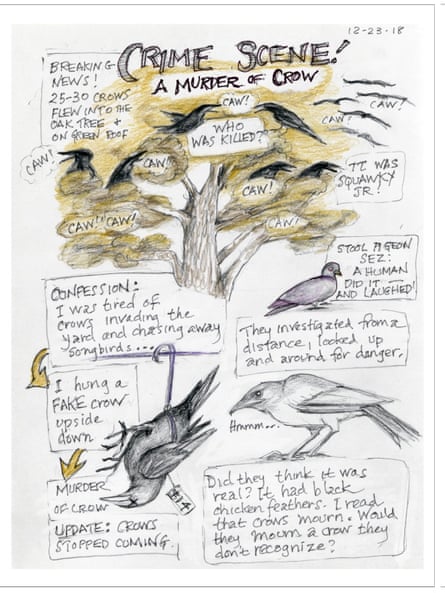 12-23-18
CRIME SCENE!
A MURDER OF CROW
BREAKING
NEWS!
25-30 CROWS
FLEW INTO THE
OAK TREE +
ON GREEN ROOF
CAW!
CAW!
CAW!
WHO
WAS KILLED?
CAW!
CAW!
CAW!
CAW!
IT WAS
SQUAWKY
JR!
CAW! CAW!
CAW!
STOOL PIGEON
SEZ:
A HUMAN
DID IT —
AND LAUGHED!
CONFESSION:
I was tired of
crows invading the
yard and chasing away
songbirds...
They investigated from a
distance, looked up
and around for danger.
I hung a
FAKE crow
upside
down
Hmmm...
MURDER
OF CROW
UPDATE: CROWS
STOPPED COMING.
Did they think it was
real? It had black
chicken feathers. I read
that crows mourn. Would
they mourn a crow they
don't recognize?